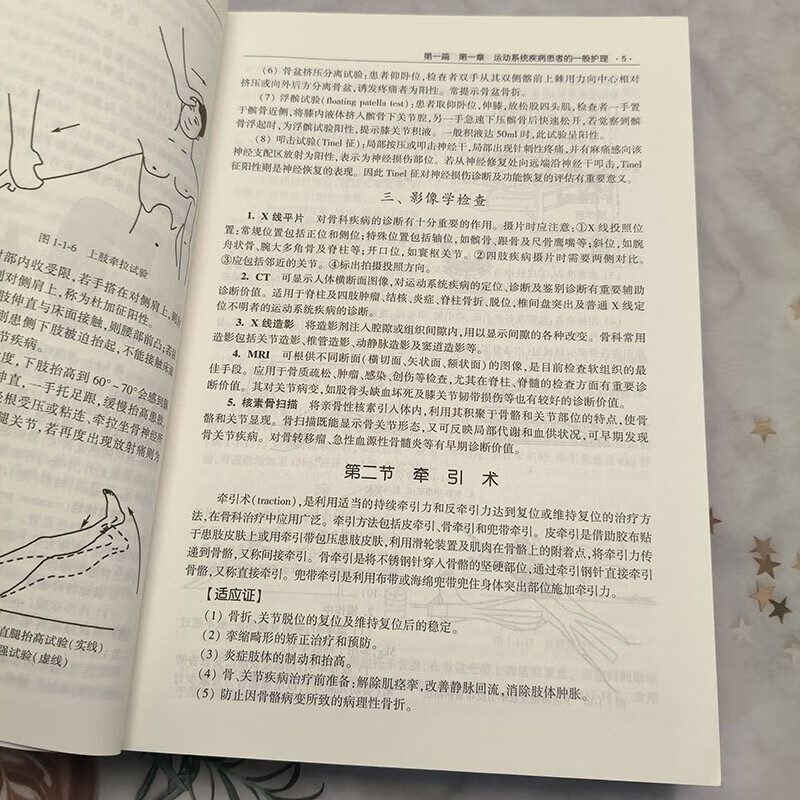 图 1-1-6 上肢牵拉试验
对部内收受限,若手搭在对侧肩上,则
对侧肩上,称为杜加征阳性。
肢伸直与床面接触,则腰部前凸;若
则患侧下肢被迫抬起,不能接触床
节疾病。
度,下肢抬高到 60°~70°会感到
伸直,一手托足跟,缓慢抬高患肢,
经根受压或粘连,牵拉坐骨神经所
腿关节,若再度出现放射痛则为
直腿抬高试验(实线)
强试验(虚线)
第一篇 第一章 运动系统疾病患者的一般护理 ·5·
(6) 骨盆挤压分离试验:患者仰卧位,检查者双手从其双侧髂前上棘用力向中心相对
挤压或向外后方分离骨盆,诱发疼痛者为阳性。常提示骨盆骨折。
(7) 浮髌试验(floating patella test):患者取仰卧位,伸膝,放松股四头肌,检查者一手置
于髌骨近侧,将膝内液体挤入髌骨下关节腔,另一手急速下压髌骨后快速松开,若觉察到髌
骨浮起时,为浮髌试验阳性,提示膝关节积液。一般积液达 50ml 时,此试验呈阳性。
(8) 叩击试验(Tinel 征):局部按压或叩击神经干,局部出现针刺性疼痛,并有麻痛感向该
神经支配区放射为阳性,表示为神经损伤部位。若从神经修复处向远端沿神经干叩击,Tinel
征阳性则是神经恢复的表现。因此 Tinel 征对神经损伤诊断及功能恢复的评估有重要意义。
三、影像学检查
1. X 线平片 对骨科疾病的诊断有十分重要的作用。摄片时应注意:①X 线投照位
置:常规位置包括正位和侧位;特殊位置包括轴位,如髌骨、跟骨及尺骨鹰嘴等;斜位,如腕
舟状骨、腕大多角骨及脊柱等;开口位,如寰枢关节。②四肢疾病摄片时需要两侧对比。
③应包括邻近的关节。④标出拍摄投照方向。
2. CT 可显示人体横断面图像,对运动系统疾病的定位、诊断及鉴别诊断有重要辅助
诊断价值。适用于脊柱及四肢肿瘤、结核、炎症、脊柱骨折、脱位,椎间盘突出及普通 X 线定
位不明者的运动系统疾病的诊断。
3. X 线造影 将造影剂注入腔隙或组织间隙内,用以显示间隙的各种改变。骨科常用
造影包括关节造影、椎管造影、动静脉造影及窦道造影等。
4. MRI 可根供不同断面(横切面、矢状面、额状面)的图像,是目前检查软组织的最
佳手段。应用于骨质疏松、肿瘤、感染、创伤等检查,尤其在脊柱、脊髓的检查方面有重要诊
断价值。其对关节病变,如股骨头缺血坏死及膝关节韧带损伤等也有较好的诊断价值。
5. 核素骨扫描 将亲骨性核素引人体内,利用其积聚于骨骼和关节部位的特点,使骨
骼和关节显现。骨扫描既能显示骨关节形态,又可反映局部代谢和血供状况,可早期发现
骨关节疾病。对骨转移瘤、急性血源性骨髓炎等有早期诊断价值。
第二节 牵引术
牵引术(traction),是利用适当的持续牵引力和反牵引力达到复位或维持复位的治疗方
法,在骨科治疗中应用广泛。牵引方法包括皮牵引、骨牵引和兜带牵引。皮牵引是借助胶布贴
于患肢皮肤上或用牵引带包压患肢皮肤,利用滑轮装置及肌肉在骨骼上的附着点,将牵引力传
递到骨骼,又称间接牵引。骨牵引是将不锈钢针穿人骨骼的坚硬部位,通过牵引钢针直接牵引
骨骼,又称直接牵引。兜带牵引是利用布带或海绵兜带兜住身体突出部位施加牵引力。
【适应证】
(1) 骨折、关节脱位的复位及维持复位后的稳定。
(2) 挛缩畸形的矫正治疗和预防。
(3) 炎症肢体的制动和抬高。
(4) 骨、关节疾病治疗前准备:解除肌痉挛,改善静脉回流,消除肢体肿胀。
(5) 防止因骨骼病变所致的病理性骨折。